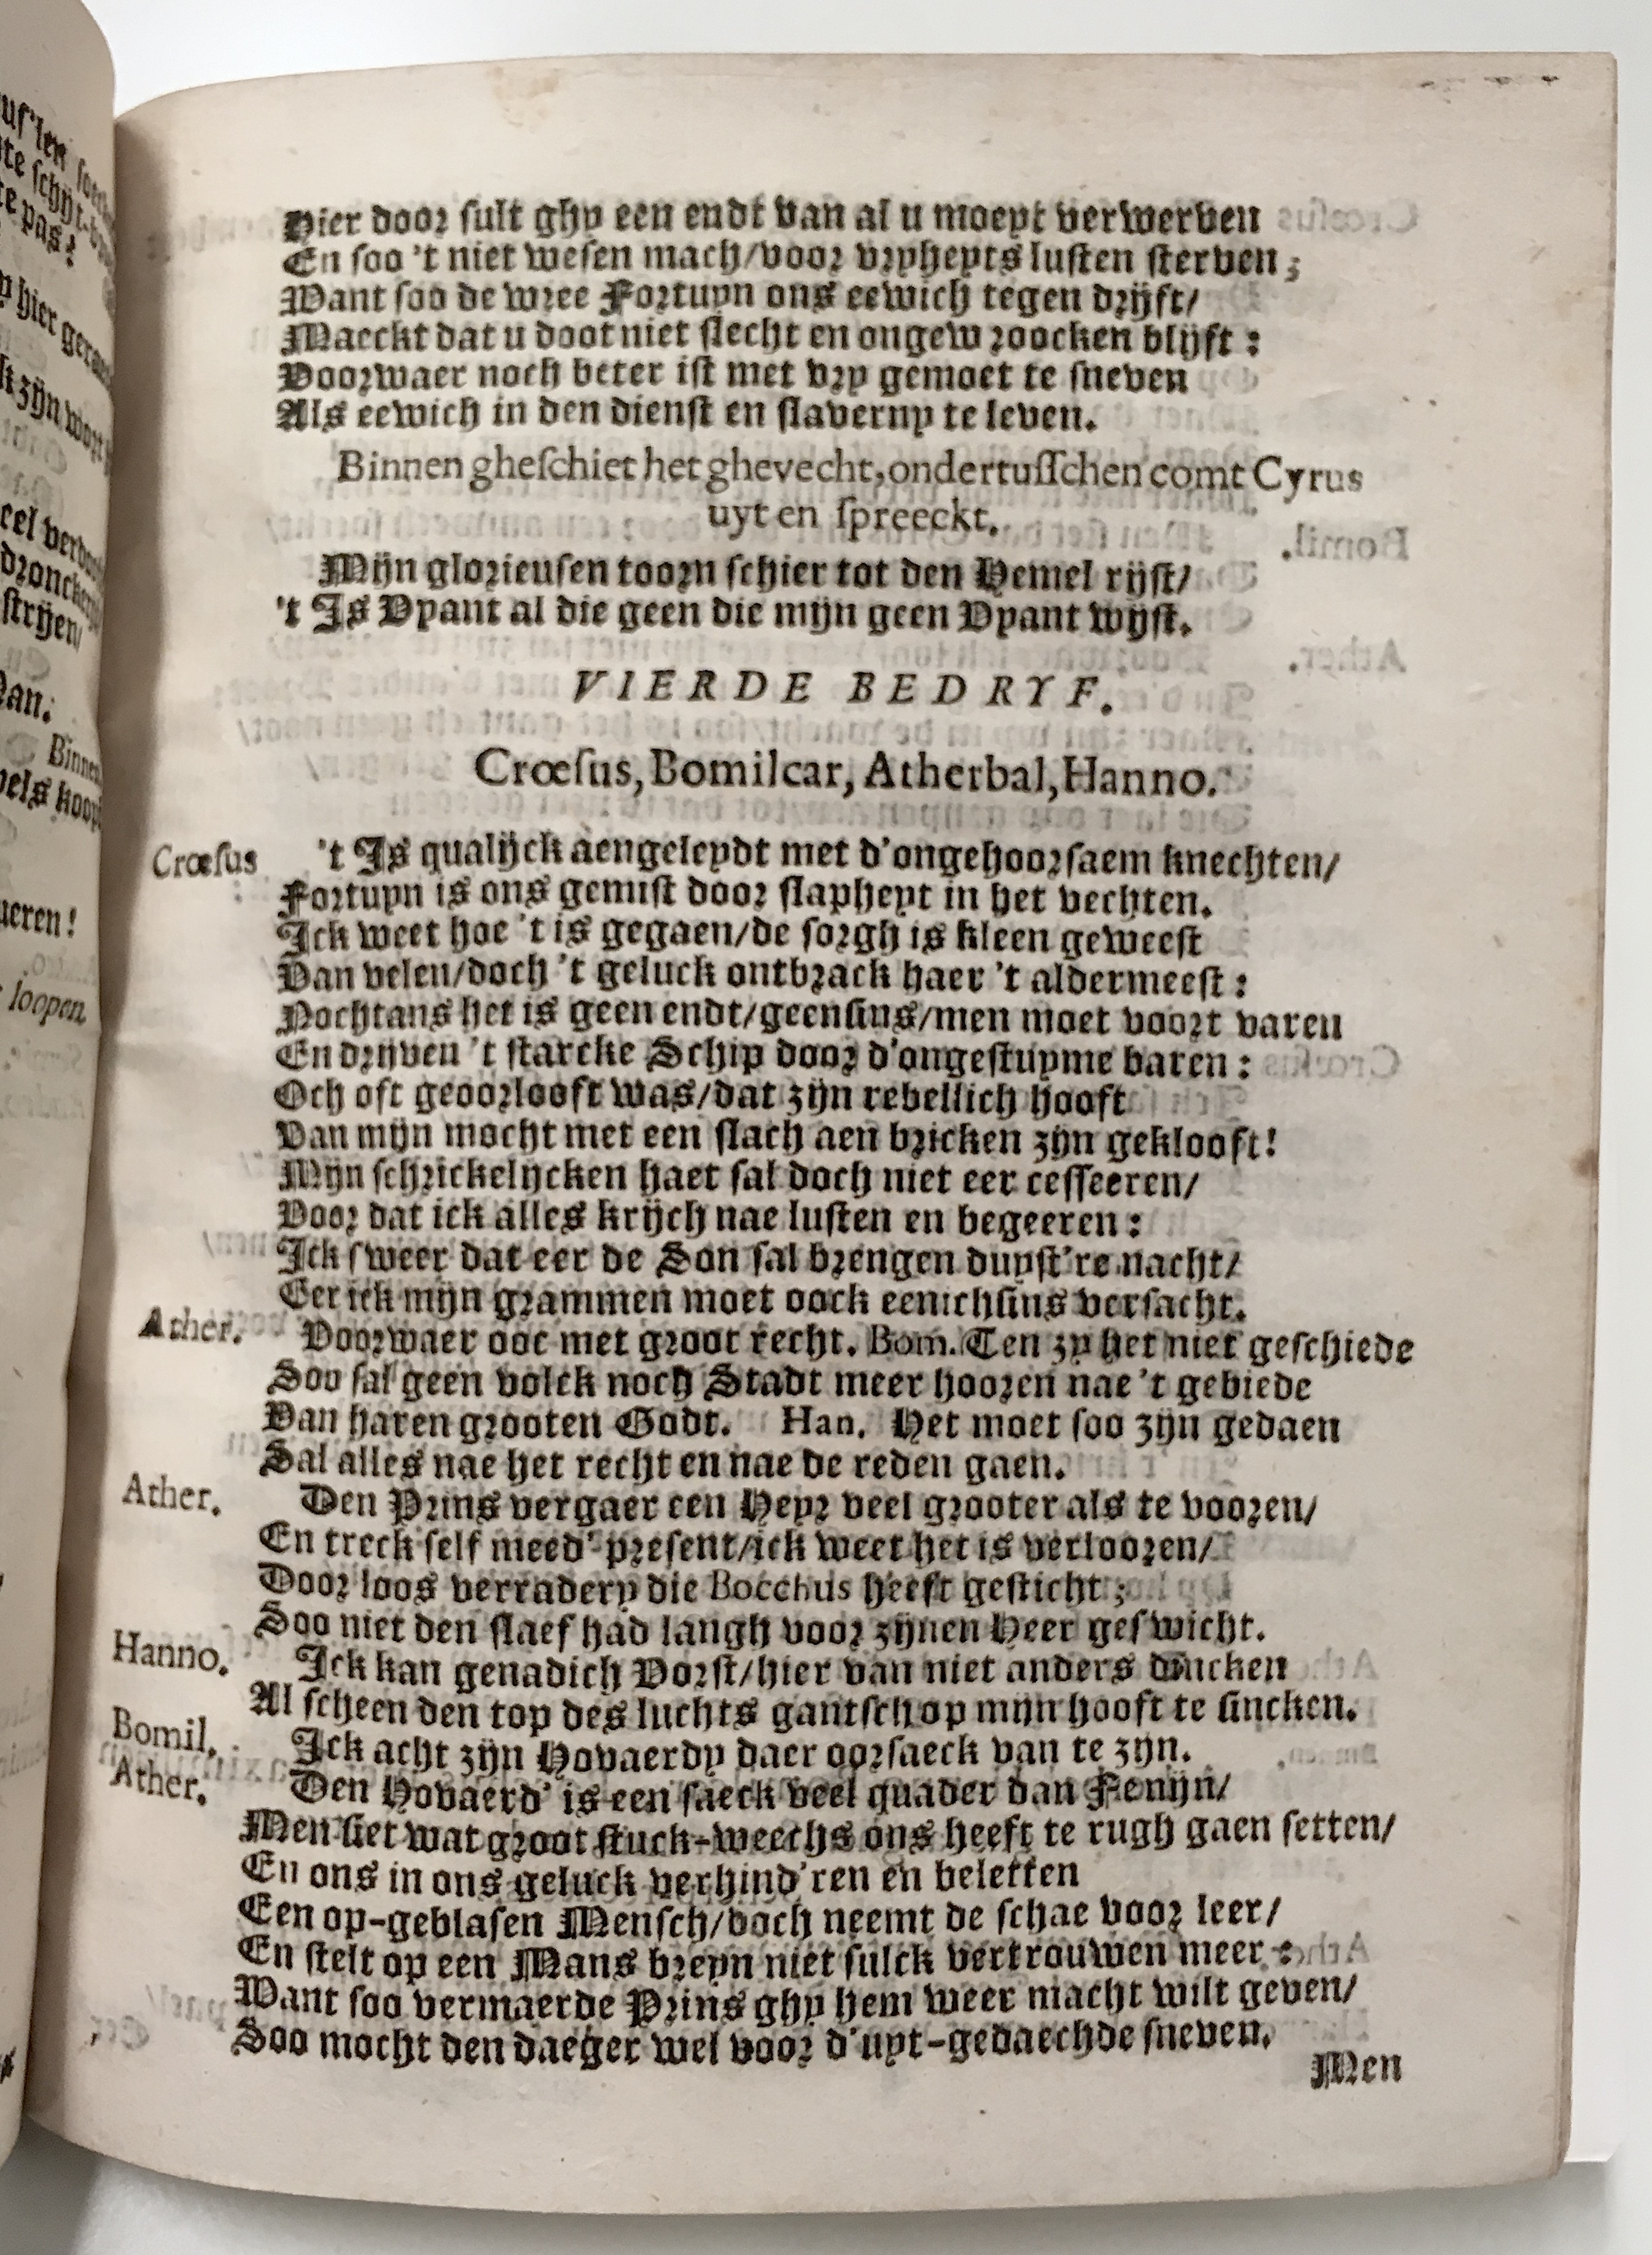 Hier door sult ghy een endt van al u moeyt verwerven
En soo 't niet wesen mach/voor vryheyts lusten sterven;
Want soo de wree Fortuyn ons eewich tegen drijft/
Maeckt dat u doot niet slecht en ongewroocken blijft:
Voorwaer noch beter ist met vry gemoet te sneven
Als eewich in den dienst en slaverny te leven.
Binnen gheschiet het ghevecht, ondertusschen comt Cyrus
uyt en spreeckt.
Mijn glorieusen toorn schier tot den Hemel rijst/
't Is Vyant al die geen die mijn geen Vyant wijst.
VIERDE BEDRYF.
Crœsus, Bomilcar, Atherbal, Hanno.
Crœsus 't Is qualijck aengeleydt met d'ongehoorsaem knechten/
Fortuyn is ons gemist door slapheyt in het vechten.
Ick weet hoe 't is gegaen/de sorgh is kleen geweest
Van velen/doch 't geluck ontbrack haer 't aldermeest:
Nochtans het is geen endt/geensins/men moet voort varen
En drijven 't starcke Schip door d'ongestuyme baren:
Och oft geoorlooft was/dat zijn rebellich hooft
Van mijn mocht met een slach aen bricken zijn geklooft!
Mijn schrickelijcken haet sal doch niet eer cesseeren/
Voor dat ick alles krijch nae lusten en begeeren:
Ick sweer dat eer de Son sal brengen duyst're nacht/
Eer ick mijn grammen moet oock eenichsins versacht.
Ather. Voorwaer ooc met groot recht. Bom. Ten zy het niet geschiede
Soo sal geen volck noch Stadt meer hooren nae 't gebiede
Van haren grooten Godt. Han. Het moet soo zijn gedaen
Sal alles nae het recht en nae de reden gaen.
Ather. Den Prins vergaer een Heyr veel grooter als te vooren/
En treck self meed' present/ick weet het is verlooren/
Door loos verradery die Bocchus heeft gesticht;
Soo niet den slaef had langh voor zijnen Heer geswicht.
Hanno. Ick kan genadich Vorst/hier van niet anders duncken
Al scheen den top des luchts gantsch op mijn hooft te sincken.
Bomil. Ick acht zijn Hovaerdy daer oorsaeck van te zijn.
Ather. Den Hovaerd' is een saeck veel quader dan Fenijn/
Men siet wat groot stuck-weechs ons heeft te rugh gaen setten/
En ons in ons geluck verhind'ren en beletten
Een op-geblasen Mensch/doch neemt de schae voor leer/
En stelt op een Mans breyn niet sulck vertrouwen meer:
Want soo vermaerde Prins ghy hem weer macht wilt geven/
Soo mocht den daeger wel voor d'uyt-gedaechde sneven.
Men